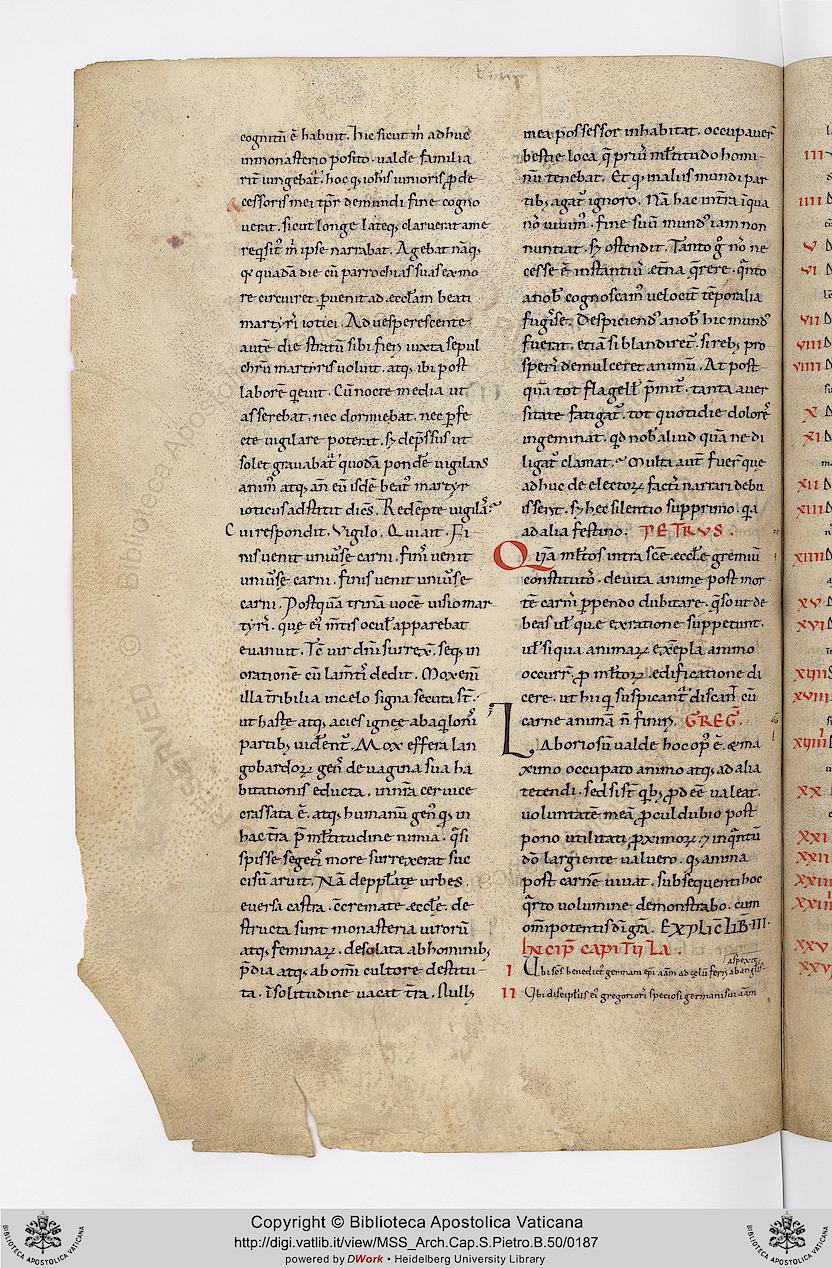 cognitū ē habuit. hic sicut m̄ adhuc
in monasterio posito. ualde familia
rit͛ iungebat͛. hoc q; iobis iunioris p̄de
cessoris mei tp̄r de mundi fine cogno
uerat. sicut longe lateq; claruerat a me
reqsit͛ m̄ ipse narrabat. Agebat nāq;
q; quadā die cū parrochias suas ex mo
re circuiret. puenit ad eccl̄am beati
martyri iotici. Aduesperescente
autē die stratū sibi fieri iuxta sepul
chrū martyris uoluit. atq; ibi post
laborē qeuit. Cū nocte media ut
asserebat. nec dormiebat. nec pfe
cte uigilare poterat. s; dep̄ssus ut
solet grauabat͛ quodā pond͛e uigilans
anim͛. atq; an̄ eū isdē beat͛ martyr
ioticus adstitit dicēs. Redēpte uigilas
Cui respondit. Vigilo. Qui ait. Fi
nis uenit uniu͛se carni. finis uenit
uniu͛se carni. finis uenit uniu͛se
carni. Post quā trinā uocē uisio mar
tyris. que ei͛ m̄tis ocul͛ apparebat
euanuit. Tc̄ uir dn̄i surrex͛. seq; in
orationē cū lam̄t͛ dedit. Mox eni͛
illa t͛ribilia in celo signa secuta st̄.
ut haste atq; acies ignee ab aqlonis
partib; uid͛ent͛. Mox effera lan
gobardoꝝ gens de uagina sua ha
bitationis educta. in nr̄a ceruice
crassata ē. atq; humanū gen͛ q; in
hac t͛ra p̄ ml̄titudine nimia. q̄si
spisse segetis more surrexerat suc
cisū aruit. Nā depp͛late urbes.
euersa castra. c͛cremate eccl̄e. de
structa sunt monasteria uirorū
atq; feminaꝝ. desolata ab hominib;
p̄dia atq; ab om̄i cultore destitu-
ta. ī solitudine uacat t͛ra. Null͛
mea possessor inhabitat. occupauer͛
bestie loca. q̄ pri͛ ml̄titudo homi-
nū tenebat. Et q; in aliis mundi par
tib; agat͛ ignoro. Nā hac in t͛ra in qua
nos uiuim͛. fine suū mund͛ iam non
nuntiat. s; ostendit. Tanto g͛ nos ne
cesse ē instanti͛ et͛na q̄rere. q͛nto
a nob͛ cognoscim͛ uelocit͛ tēporalia
fugisse. Despiciend͛ a nob͛ hic mund͛
fuerat. etiā si blandiret͛. si reb; pro
speris demulceret animū. At post
quā tot flagell͛ p̄mit͛. tanta aduer
sitate fatigat͛. tot quotidie dolores
ingeminat. qd nob͛ aliud quā ne di
ligat͛ clamat. Multa aut͛ fuer͛ que
adhuc de electoꝝ factis narrari debu
issent. s; hec silentio supprimo. qa
ad alia festino. PETRVS.
Qu͛a ml̄tos intra scē eccl̄e gremiū
constitutos. de uita anime post mor
tē carnis ppendo dubitare. q͛so ut de
beas ul̄ que ex ratione suppetunt.
ul̄ si qua animaꝝ exēpla animo
occurr͛. p̄ ml̄toꝝ edificatione di
cere. ut hii qui suspicant͛ discant cū
carne animā n̄ finiri. GREG͛.
Laboriosū ualde hoc op͛ ē. & ma
ximo occupato animo atq; ad alia
tetendi. sed si st͛ qb; p̄dee ualeat.
uoluntatē meā p̄cul dubio post
pono utilitati p̄ximoꝝ. ⁊ inq͛ntū
dō largiente ualuero. q; anima
post carnē uiuat. subsequenti hoc
q͛rto uolumine demonstrabo. cum
om̄ipotentis di͛ gr̄a. EXPLIC̄ LIB̄. III.
INCIP̄ CAPITULA.
I Vbi sc̄s benedict͛ germani epi aīam ad celū ferri ab angelis
aspexit
II Vbi discipulus ei͛ gregorius speciosi germani sui aīam
Copyright © Biblioteca Apostolica Vaticana
http://digi.vatlib.it/view/MSS_Arch.Cap.S.Pietro.B.50/0187
powered by DWork • Heidelberg University Library